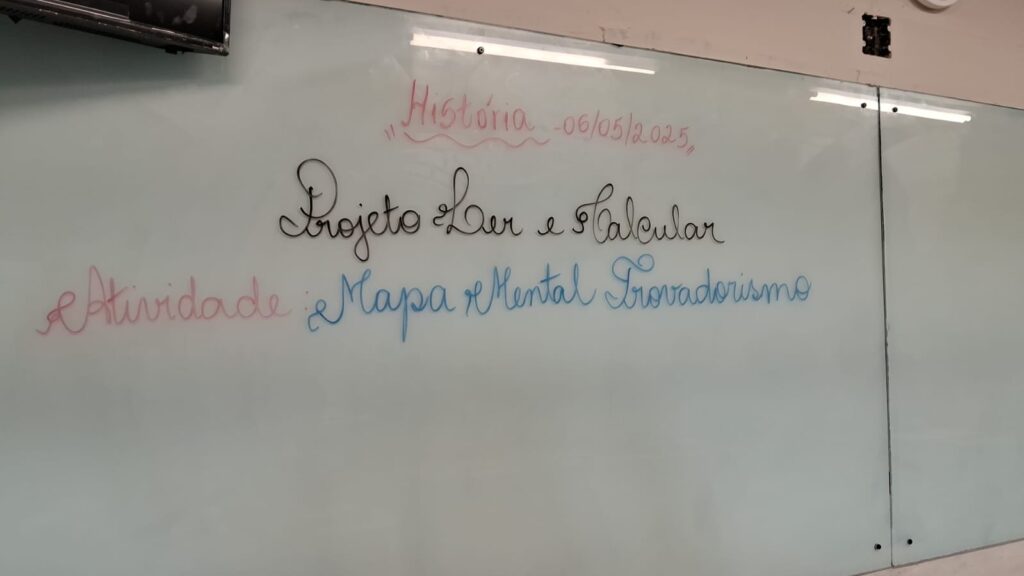 "História - 06/05/2025"
Projeto Ler e Calcular
Atividade: Mapa Mental Trovadorismo